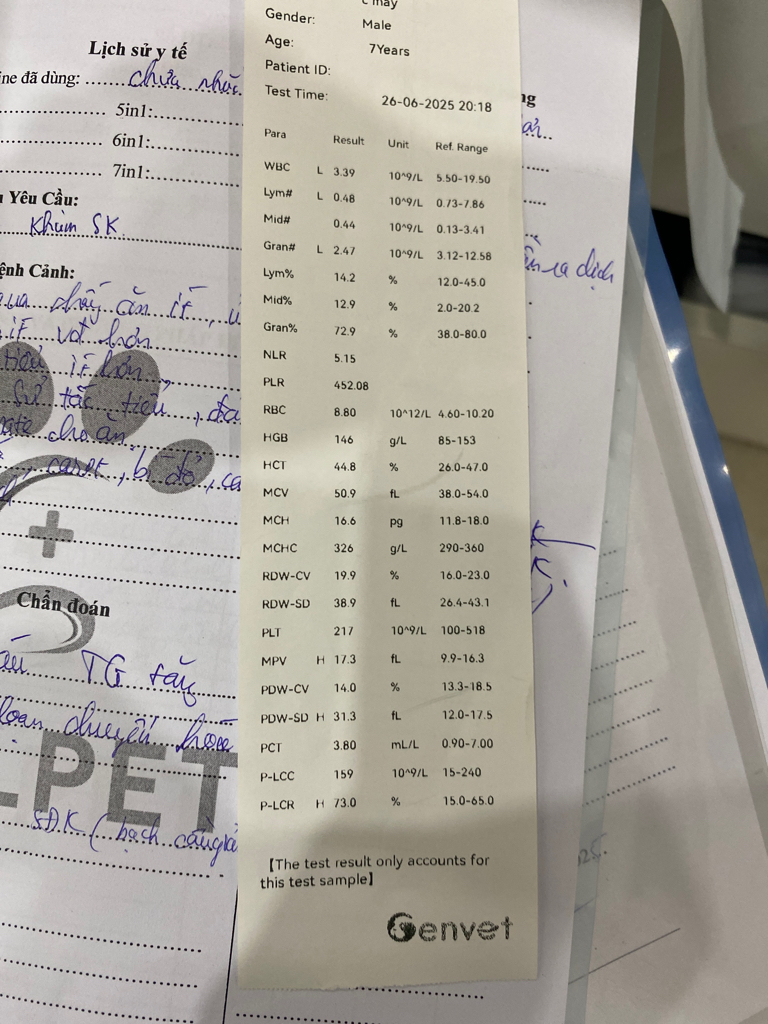 Lịch sử y tế
ine đã dùng: ...... chưa
5in1:
6in1:
7in1:
Yêu Cầu:
Khám SK
ệnh Cảnh:
thấy ăn ít, u
ít
tiểu ít hơn
tắc tiểu, đa
pate cho ăn
carot, bí đỏ, ca
Chẩn đoán
TG tăng
loạn chuyển hóa
LPET
SĐK (bạch cầu giả
Gender: Male
Age: 7Years
Patient ID:
Test Time: 26-06-2025 20:18
Para Result Unit Ref. Range
WBC L 3.39 10^9/L 5.50-19.50
Lym# L 0.48 10^9/L 0.73-7.86
Mid# 0.44 10^9/L 0.13-3.41
Gran# L 2.47 10^9/L 3.12-12.58
Lym% 14.2 % 12.0-45.0
Mid% 12.9 % 2.0-20.2
Gran% 72.9 % 38.0-80.0
NLR 5.15
PLR 452.08
RBC 8.80 10^12/L 4.60-10.20
HGB 146 g/L 85-153
HCT 44.8 % 26.0-47.0
MCV 50.9 fL 38.0-54.0
MCH 16.6 pg 11.8-18.0
MCHC 326 g/L 290-360
RDW-CV 19.9 % 16.0-23.0
RDW-SD 38.9 fL 26.4-43.1
PLT 217 10^9/L 100-518
MPV H 17.3 fL 9.9-16.3
PDW-CV 14.0 % 13.3-18.5
PDW-SD H 31.3 fL 12.0-17.5
PCT 3.80 mL/L 0.90-7.00
P-LCC 159 10^9/L 15-240
P-LCR H 73.0 % 15.0-65.0
【The test result only accounts for
this test sample】
Genvet
ng
ra dịch